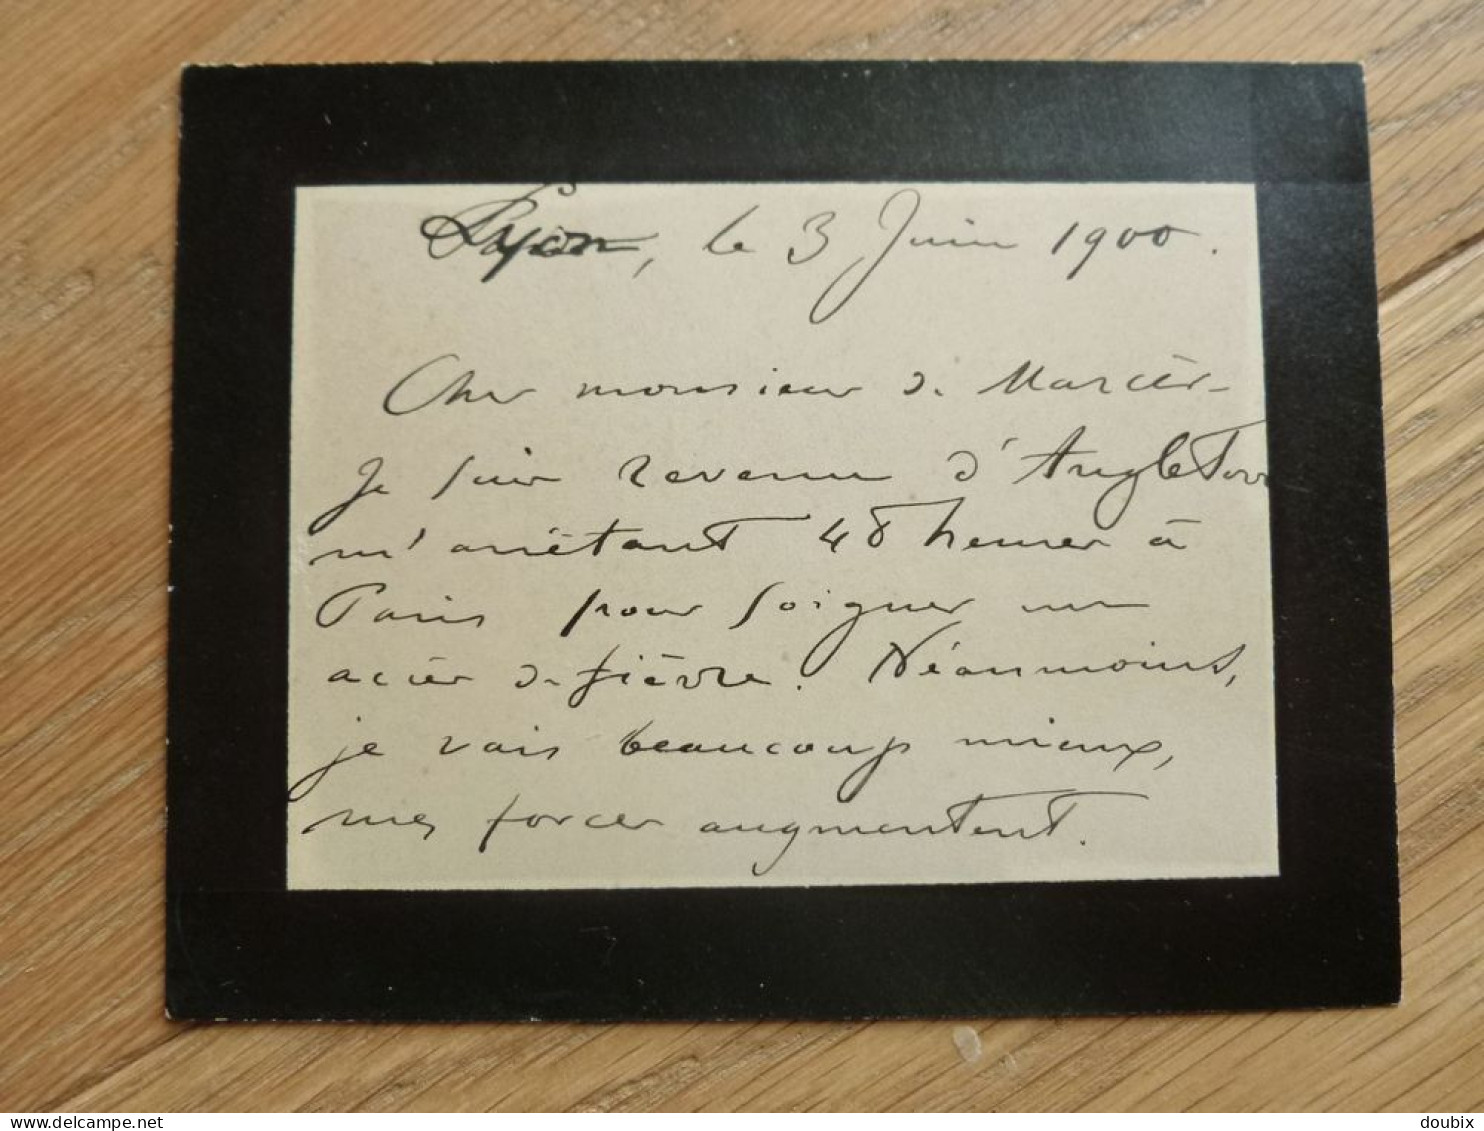 Lyon, le 3 Juin 1900.
Cher monsieur de
Je suis revenu d'Angleterre
m'arrêtant 48 heures à
Paris pour soigner un
accès de fièvre. Néanmoins,
je vais beaucoup mieux,
mes forces augmentent.
delcampe.net
doubix